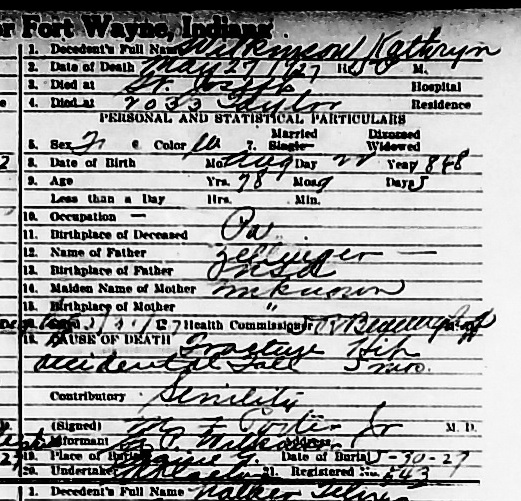 or Fort Wayne, Indiana
1. Decedent's Full Name Wilkinson Kathryn
2. Date of Death May 27 1927 H. M.
3. Died at St. Joseph Hospital
4. Died at 2033 Taylor Residence
PERSONAL AND STATISTICAL PARTICULARS
Married Divorced
5. Sex F 6 Color W 7. Single Widowed
8. Date of Birth Mo. Aug Day 22 Year 1848
9. Age Yrs. 78 Mos. 9 Days 5
Less than a Day Hrs. Min.
10. Occupation —
11. Birthplace of Deceased Pa.
12. Name of Father Zellinger —
13. Birthplace of Father
14. Maiden Name of Mother unknown
15. Birthplace of Mother "
Health Commissioner
16. CAUSE OF DEATH Fracture Hip
accidental Fall 5 mo.
Contributory Senility
(Signed) Porter Jr M. D.
Informant Address
19. Place of Burial Date of Burial 5-30-27
20. Undertaker 21. Registered No. 543
1. Decedent's Full Name Walker